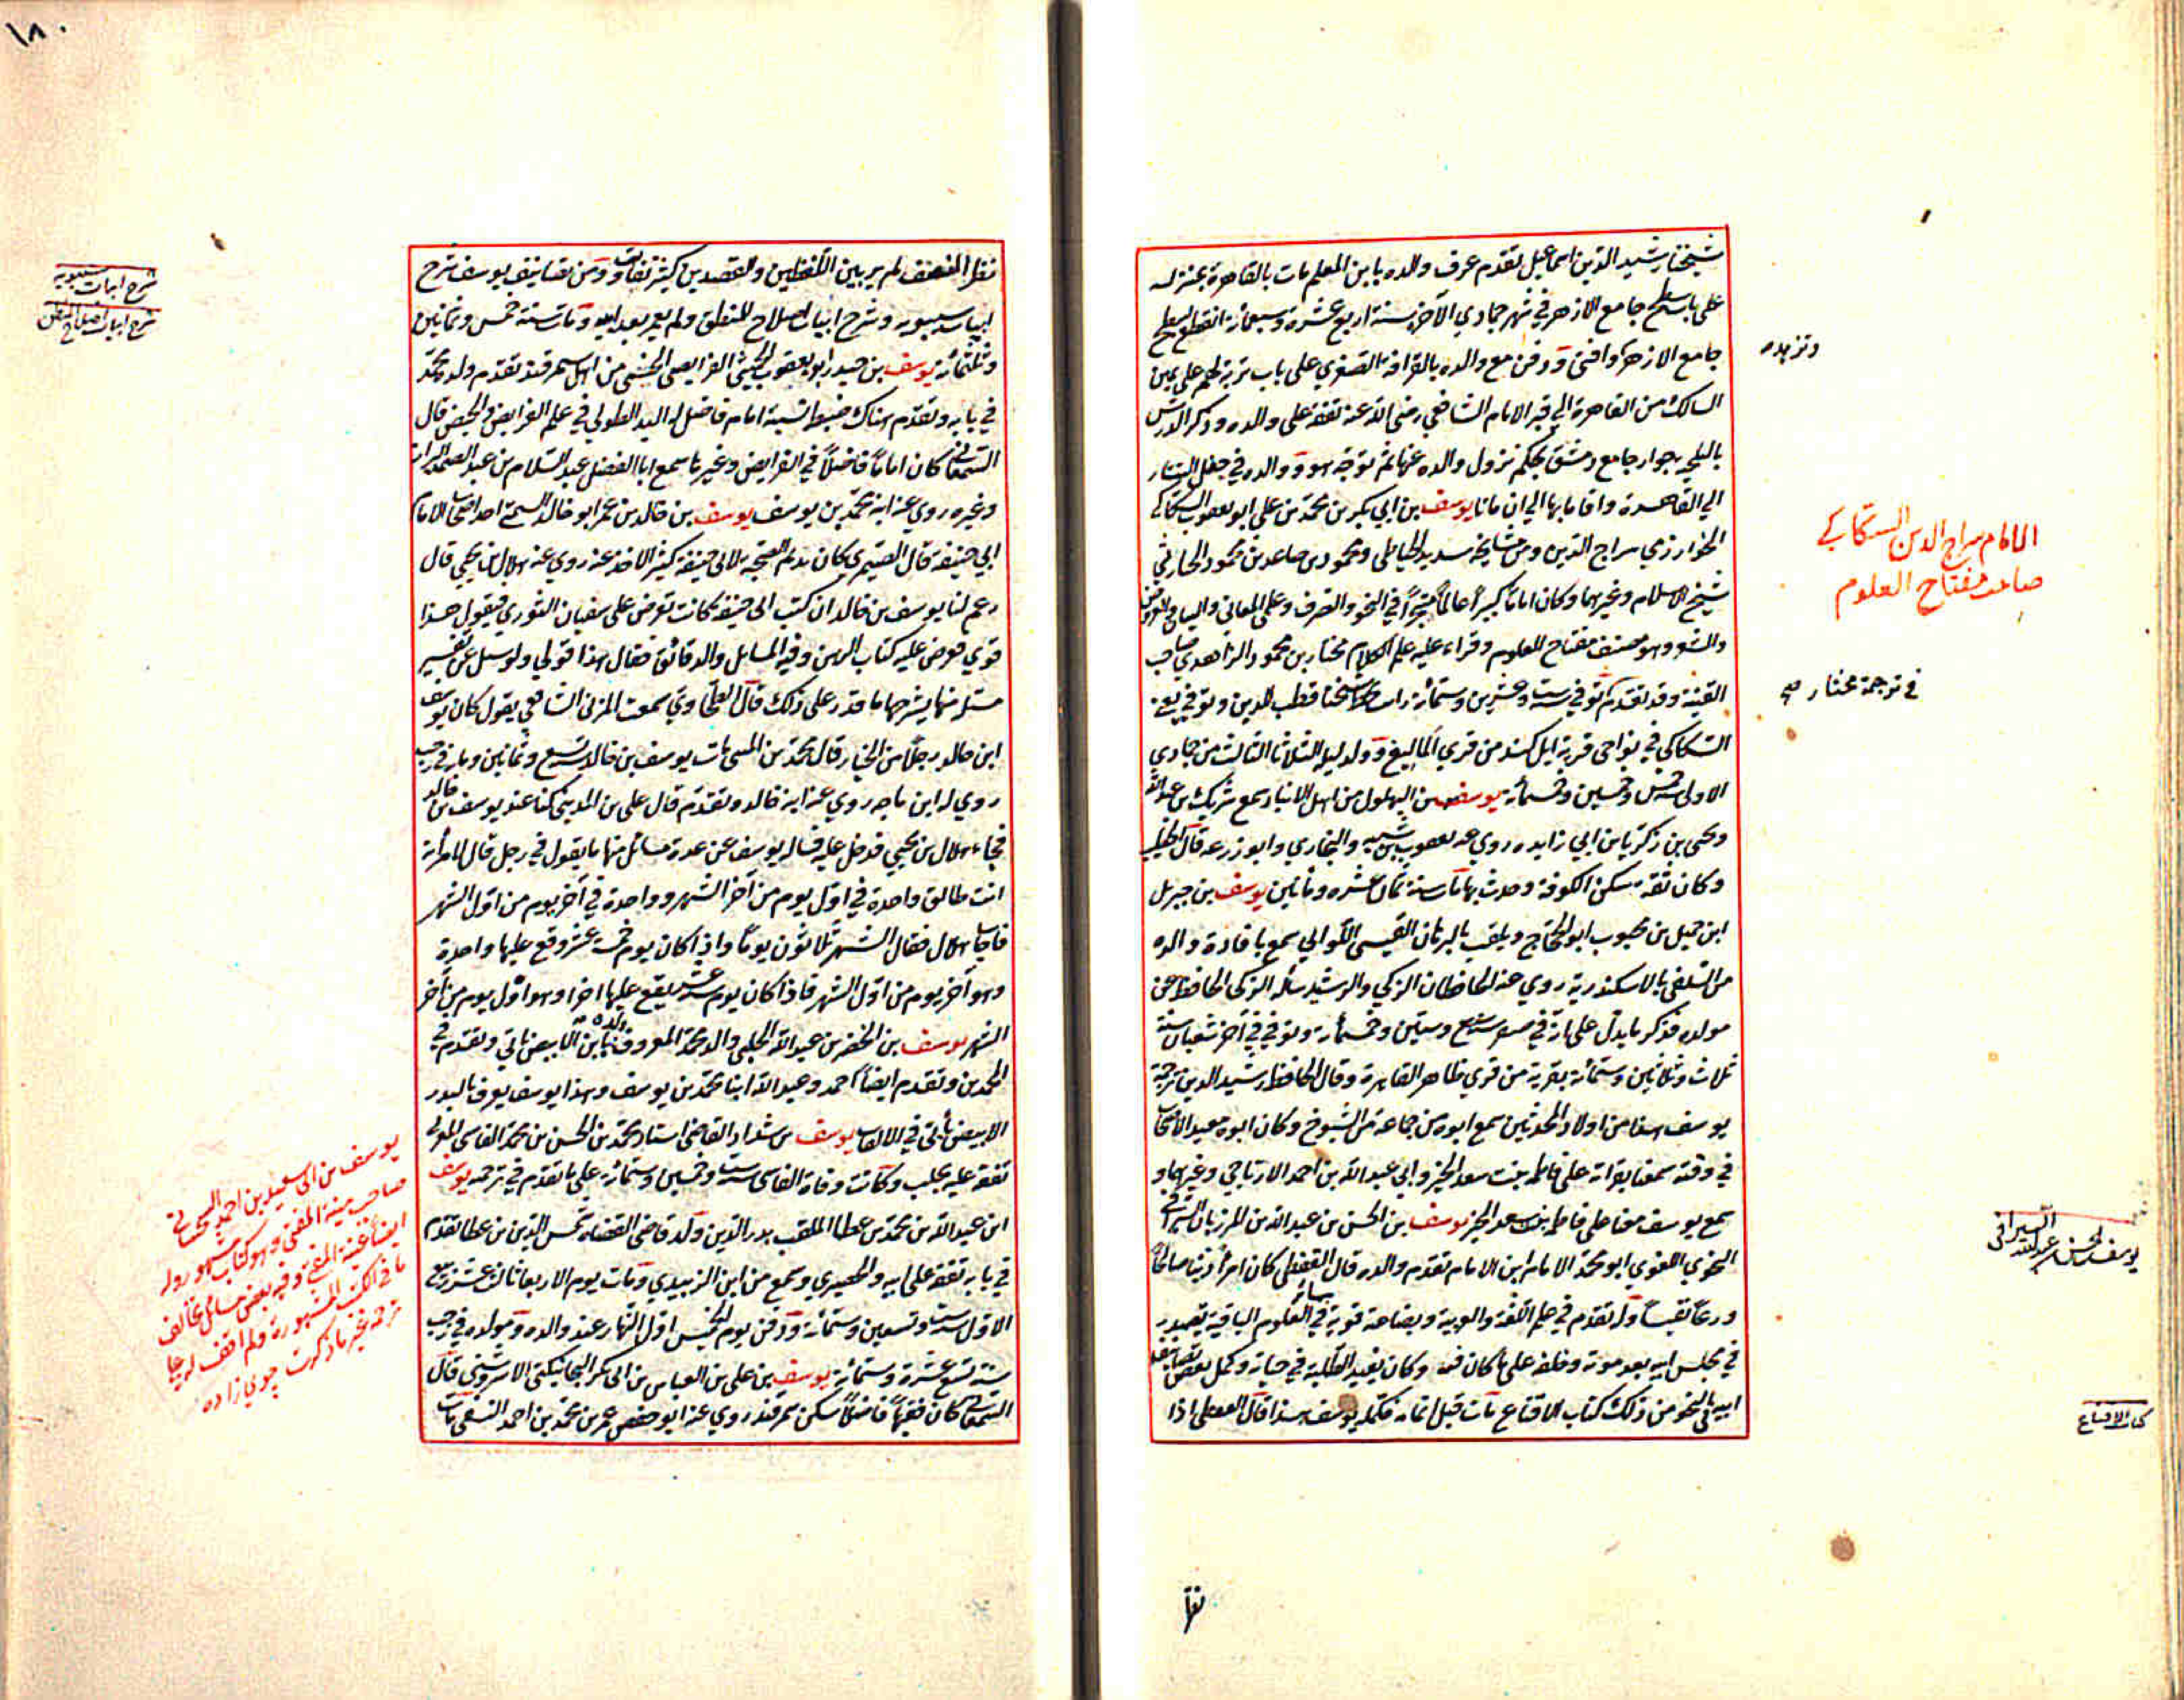 شيخنا رشيد الدين اسماعيل تقدم عرف والده بابن المعلم مات بالقاهرة بمنزله
على باب سطح جامع الازهر في شهر جمادي الآخر سنة اربع عشرة وسبعمائة انقطع بسطح
جامع الازهر وافتى ودفن مع والده بالقرافة الصغري على باب تربة لهم على يمين
السالك من القاهرة الي قبر الامام الشافعي رضي الله عنه تفقه على والده وذكر الدرس
بالبلخية جوار جامع دمشق بحكم نزول والده عنها ثم توجه هو ووالده في جفل التتار
الي القاهرة واقاما بها الي ان ماتا يوسف بن ابي بكر بن محمد بن علي ابو يعقوب السكاكي
الخوارزمي سراج الدين ومن مشايخه سديد الخياطي ومحمود بن صاعد بن محمود الحارثي
شيخ الاسلام وغيرهما وكان اماما كبيرا عالما متبحرا في النحو والتصرف وعلمي المعاني والبيان والعروض
والشعر وهو مصنف مفتاح العلوم وقراء عليه علم الكلام مختار بن محمود الزاهدي صاحب
القنية وقد تقدم توفي ست وعشرين وستمائة رايت بخط شيخنا قطب الدين وتوفي يعني
السكاكي في نواحي قرية ايل كند من قري ألماليغ وولد ليلة الثلاثا الثالث من جمادي
الاولى سنة خمس وخمسين وخمسمائة يوسف بن البهلول من اهل الانبار سمع شريك بن عبد الله
ويحيى بن زكريا بن ابي زايده روي عنه يعقوب بن شيبه والبخاري وابو زرعه قال الخطيب
وكان ثقة سكن الكوفة وحدث بها مات سنة ثمان عشرة ومائتين يوسف بن جبريل
ابن جميل بن محبوب ابو الحجاج ويلقب بالبرهان القيسي اللوالي سمع بافادة والده
من السلفي بالاسكندرية روي عنه الحافظان الزكي والرشيد سأله الزكي الحافظ عن
مولده فذكر ما يدل على انه في سنة سبع وستين وخمسمائة وتوفي في آخر شعبان سنة
ثلاث وثلاثين وستمائة بقرية من قري ظاهر القاهرة وقال الحافظ رشيد الدين ترجمة
يوسف هذا من اولاد المحدثين سمع ابوه من جماعة من الشيوخ وكان ابوه معيد الاصحاب
في وقته سمعنا بقراته على فاطمه بنت سعد الخير وابي عبد الله بن احمد الارتاحي وغيرهما و
سمع يوسف معنا على فاطمه بنت سعد الخير يوسف بن الحسن بن عبد الله بن المرزبان السيرافي
النحوي اللغوي ابو محمد الامام ابن الامام تقدم والده قال القفطي كان امرأ دينا صالحا
ورعا تقيا وله تقدم في علم اللغة والعربية وبضاعة قوية في العلوم الباقية تصدر
في مجلس ابيه بعد موته وخلفه على ما كان فيه وكان يفيد الطلبة في حياته وكمل بعض تصانيف
ابيه في النحو من ذلك كتاب الاقناع مات قبل اتمامه فكمله يوسف هذا قال القفطي اذا
وتزبده
الامام سراج الدين السكاكي
صاحب مفتاح العلوم
في ترجمة مختار صح
يوسف بن الحسن بن عبد الله السيرافي
كتاب الاقناع
١٨٠
نظر المنصف لم ير بين اللفظين والقصدين كثير تفاوت ومن تصانيف يوسف شرح
ابيات سيبويه وشرح ابيات اصلاح المنطق ولم يعمر بعد ابيه ومات سنة خمس وثمانين
وثلثمائة يوسف بن حيدر ابو يعقوب الخيشي الفرايضي الحنفي من اهل سمرقند تقدم ولده محمد
في بابه وتقدم هناك ضبط نسبه امام فاضل له اليد الطولي في علم الفرايض والحيض قال
السمعاني كان اماما فاضلا في الفرايض وغيرها سمع ابا الفضل عبد السلام بن عبد الصمد
وغيره روي عنه ابنه محمد بن يوسف يوسف بن خالد بن عمر ابو خالد السمتي احد اصحاب الامام
ابي حنيفة قال الصيمري كان قديم الصحبة لابي حنيفة كثير الاخذ عنه روي عنه هلال بن يحيي قال
زعم لنا يوسف بن خالد ان كتب ابي حنيفة كانت تعرض على سفيان الثوري فيقول هذا
قولي فعرض عليه كتاب الرهن وفيه المسائل والدقائق فقال هذا قولي ولو سئل عن تفسير
مسئلة منها يشرحها ما قدر على ذلك قال الطحاوي سمعت المزني الشافعي يقول كان يوسف
ابن خالد رجلا من الخيار قال محمد بن المسي مات يوسف بن خالد تسع وثمانين ومائة في رجب
روي له ابن ماجه روي عنه ابنه خالد وتقدم قال علي بن المديني كنا عند يوسف بن خالد
فجاء هلال بن يحيي فدخل عليه فسأله يوسف عن عدة مسائل منها ما يقول في رجل قال لامرأته
انت طالق واحدة في اول يوم من آخر الشهر وواحدة في آخر يوم من اول الشهر
فاجاب هلال فقال الشهر ثلاثون يوما واذا كان يوم خمسة عشر وقع عليها واحدة
وهو آخر يوم من اول الشهر فاذا كان يوم ستة عشر يقع عليها اخرا وهو اول يوم من آخر
الشهر يوسف بن الخضر بن عبد الله الحلبي والد محمد المعروف والده بابن الابيض ياتي وتقدم في
المحمدين وتقدم ايضا احمد وعبد الله ابنا محمد بن يوسف وهذا يوسف يعرف بالبدر
الابيض ياتي في الالقاب يوسف بن شداد القاضي استاد محمد بن الحسن بن محمد الفاسي المغربي
تفقه عليه بحلب وكانت وفاة الفاسي ست وخمسين وستمائة على ما تقدم في ترجمته يوسف
ابن عبد الله بن محمد بن عطا الملقب بدر الدين ولد قاضي القضاة شمس الدين بن عطا تقدم
في بابه تفقه على ابيه والحصيري وسمع من ابن الزبيدي ومات يوم الاربعا ثالث عشر ربيع
الاول سنة ست وتسعين وستمائة ودفن يوم الخميس اول النهار عند والده ومولده في رجب
سنة تسع عشرة وستمائة يوسف بن علي بن العباس بن ابي بكر النجانيكثي الاسروشني قال
السمعاني كان فقيها فاضلا سكن سمرقند روي عنه ابو حفص عمر بن محمد بن احمد النسفي مات
شرح ابيات سيبويه
شرح ابيات اصلاح المنطق
يوسف بن ابي سعيد بن احمد السجستاني
صاحب منية المفتي وهو كتاب مشهور وله
ايضا غنية المفتي وفيه بعض مسائل تخالف
ما في الكتب المشهورة ولم اقف له على
ترجمة غير ما ذكرت جوي زاده